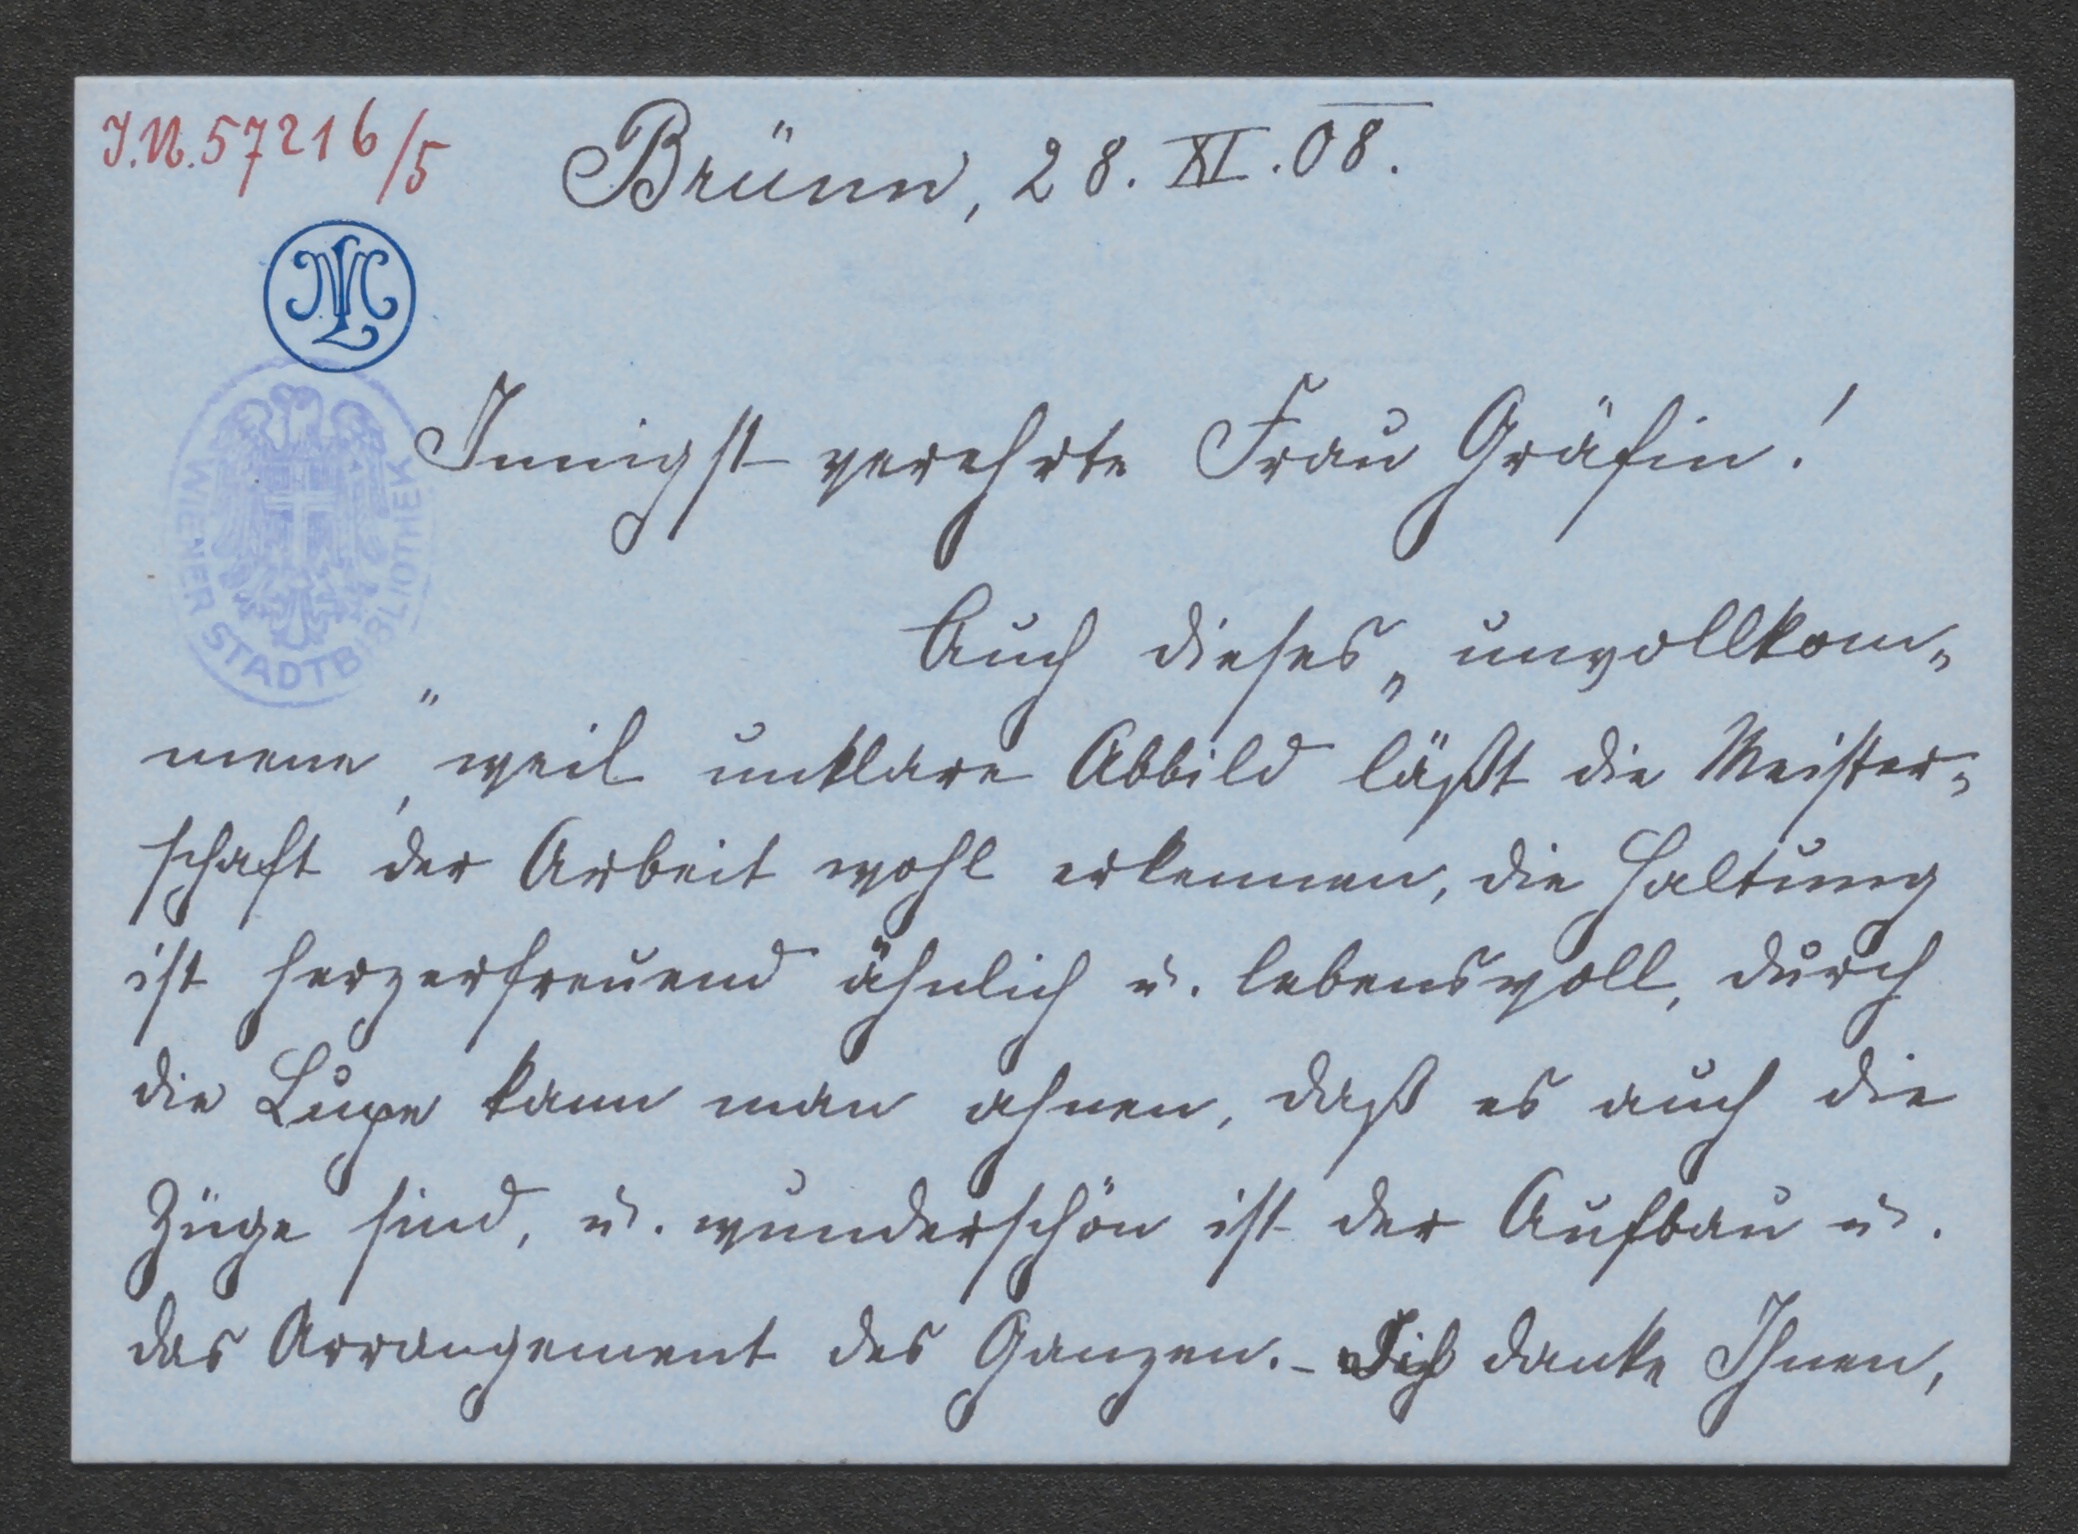 I.N. 57216/5
Brünn, 28. XI. 08.
WIENER STADTBIBLIOTHEK
Innigst verehrte Frau Gräfin!
Auch dieses „unvollkom„
mene“, weil unklare Abbild läßt die Meister„
schaft der Arbeit wohl erkennen, die Haltung
ist herzerfreuend ähnlich u. lebensvoll, durch
die Lupe kann man ahnen, daß es auch die
Züge sind, u. wunderschön ist der Aufbau u.
das Arrangement des Ganzen. – Ich danke Ihnen,